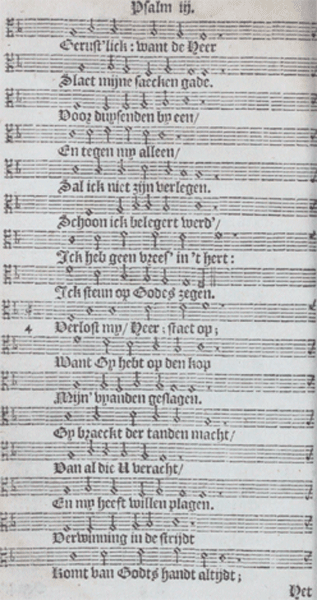 Psalm iij.
Gerust'lick: want de Heer
Slaet mijne saecken gade.
Voor duysenden by een/
En tegen my alleen/
Sal ick niet zijn verlegen.
Schoon ick belegert werd'/
Ick heb geen vrees' in 't hert:
Ick steun op Godts zegen.
4 Verlost my/ Heer: staet op;
Want Gy hebt op den kop
Mijn' vyanden geslagen.
Gy braeckt der tanden macht/
Van al die U veracht/
En my heeft willen plagen.
Verwinning in de strijdt
Komt van Godts handt altijdt;
Het